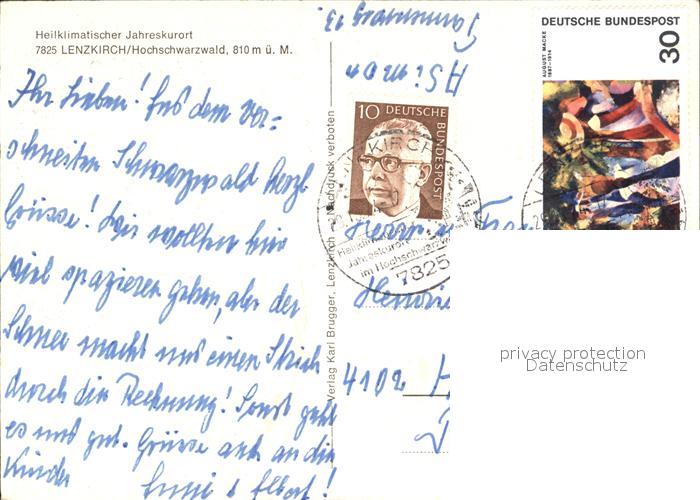 Heilklimatischer Jahreskurort
7825 LENZKIRCH/Hochschwarzwald, 810 m ü. M.
Ihr Lieben! Aus dem ver=
schneiten Schwarzwald herzl.
Grüsse! Wir wollten hier
viel spazieren gehen, aber der
Schnee macht uns einen Strich
durch die Rechnung! Sonst geht
es uns gut. Grüsse auch an die
Kinder
Albert!
Verlag Karl Brugger, Lenzkirch - Nachdruck verboten
10 DEUTSCHE BUNDESPOST
DEUTSCHE BUNDESPOST
30
AUGUST MACKE
1887-1914
Heilklimatischer
Jahreskurort
im Hochschwarzw
7825
Herrn u. Fra
4102 H
privacy protection
Datenschutz